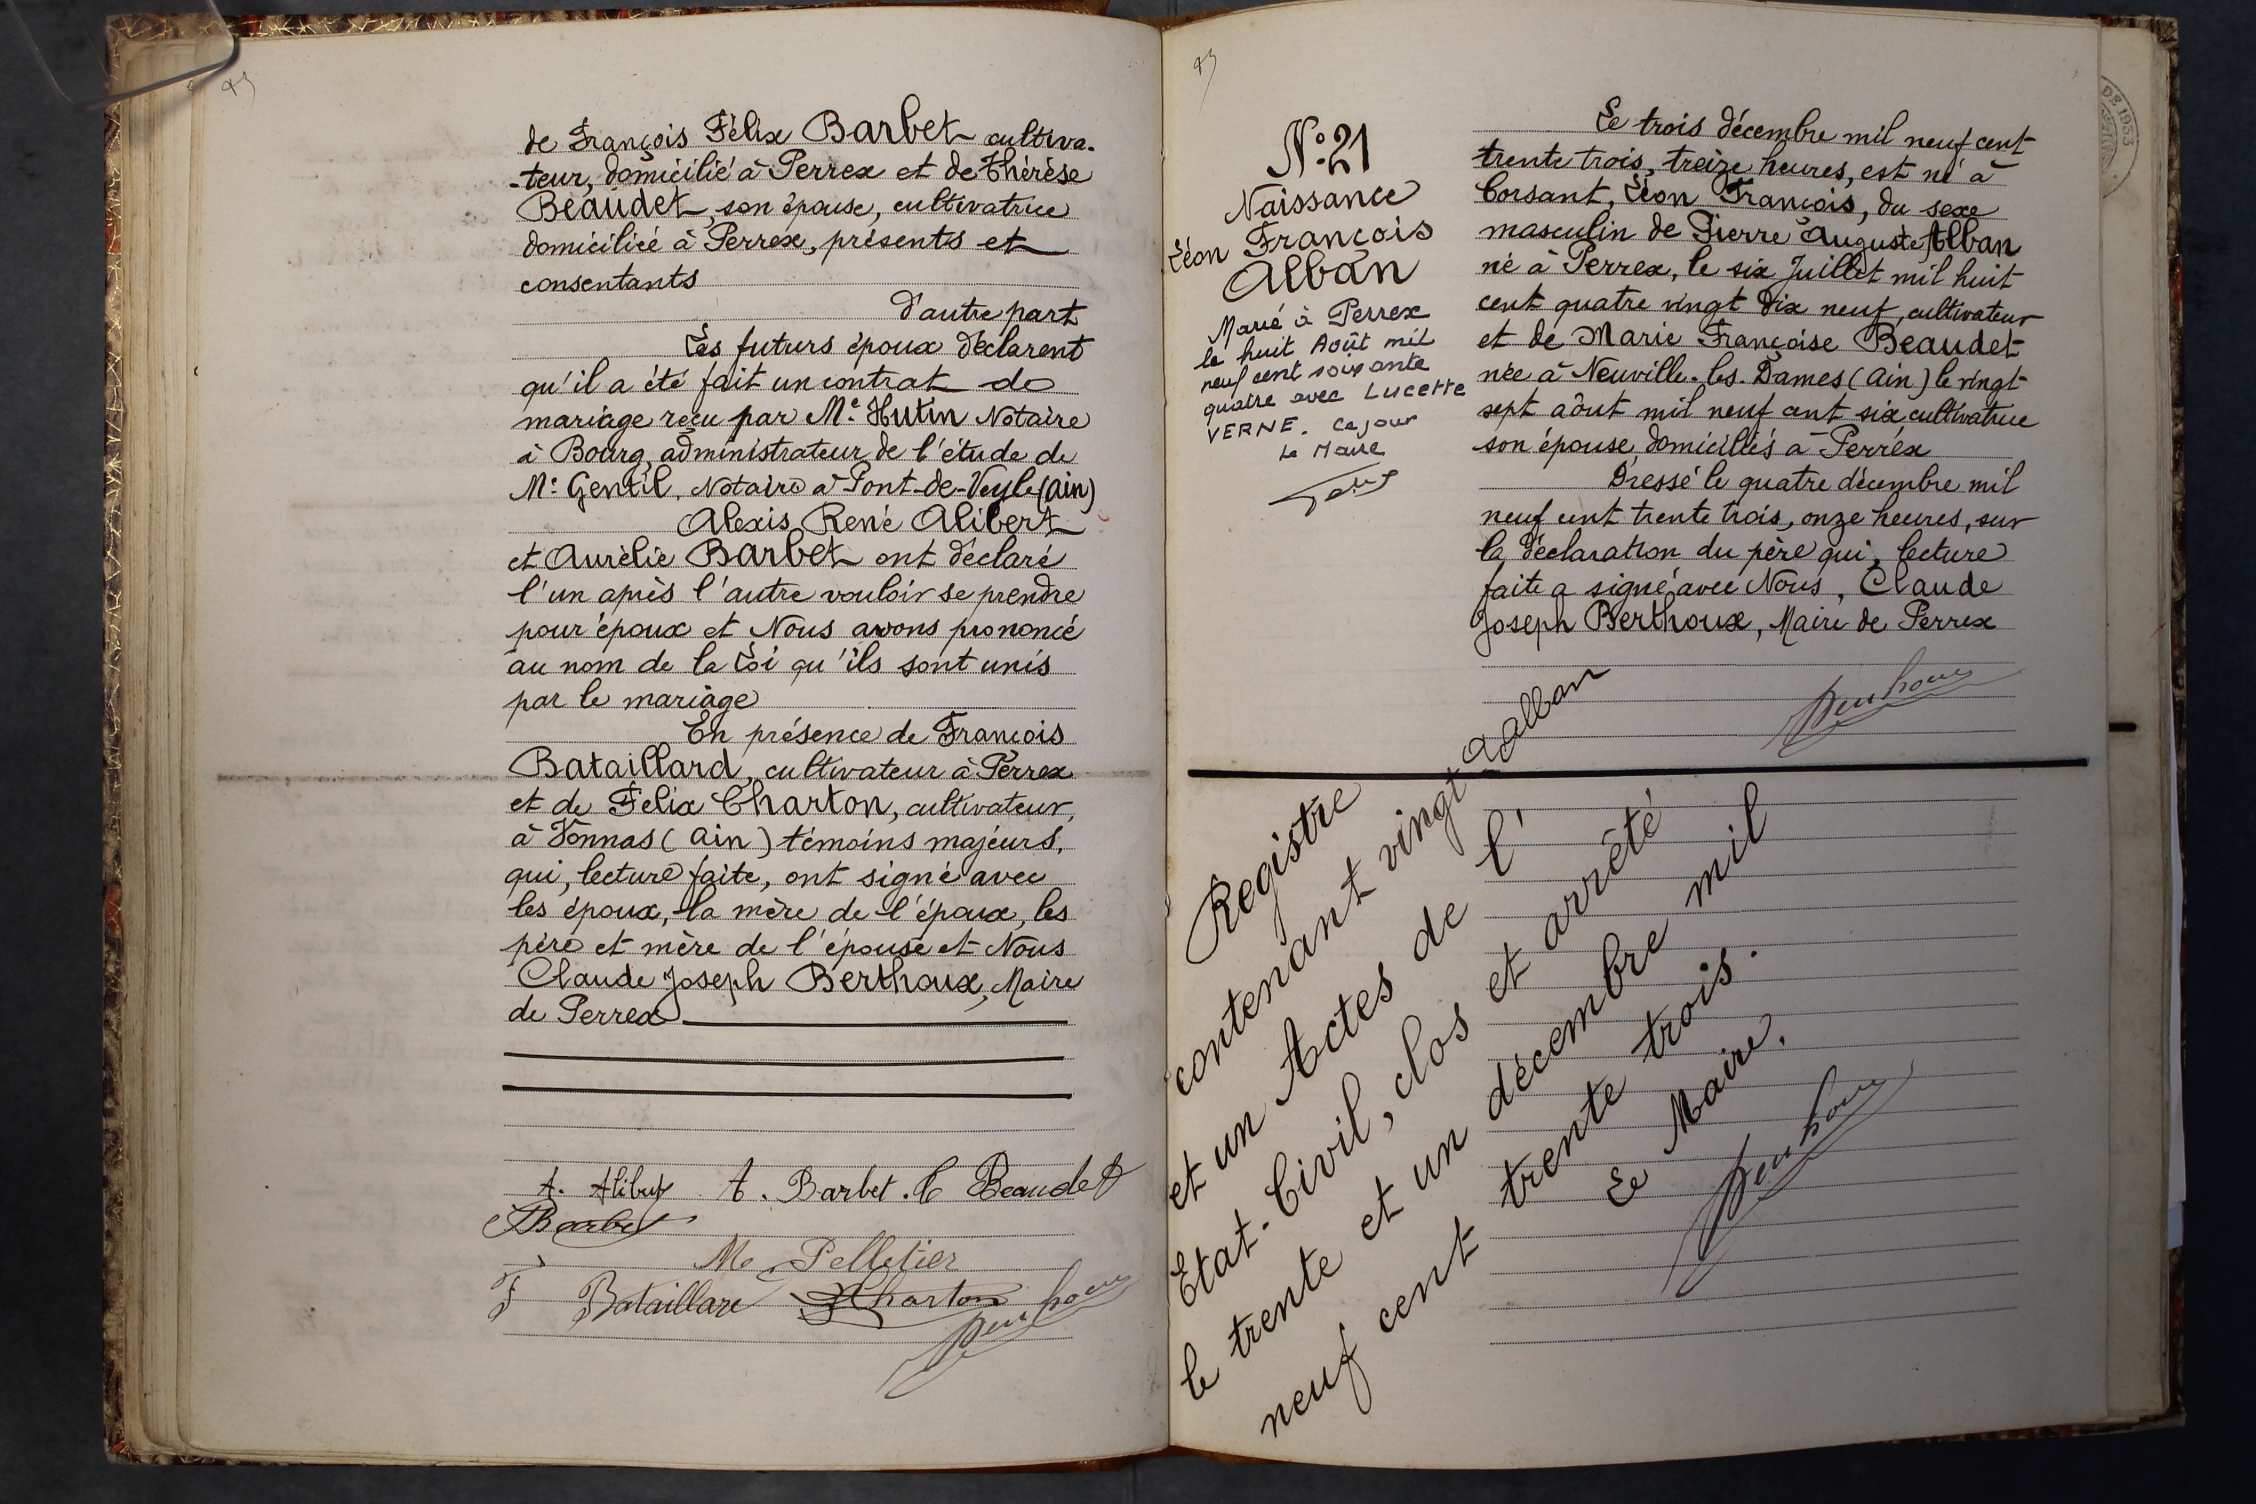 de François Félix Barbet cultiva-
-teur, domicilié à Perrex et de Thérèse
Beaudet, son épouse, cultivatrice
domicilieé à Perrex, présents et
consentants
d'autre part
Les futurs époux déclarent
qu'il a été fait un contrat de
mariage reçu par Me Hutin Notaire
à Bourg, administrateur de l'étude de
Me Gentil, Notaire à Pont-de-Veyle (Ain)
Alexis René Alibert
et Aurélie Barbet ont déclaré
l'un après l'autre vouloir se prendre
pour époux et Nous avons prononcé
au nom de la Loi qu'ils sont unis
par le mariage
En présence de François
Bataillard, cultivateur à Perrex
et de Félix Charton, cultivateur,
à Vonnas (Ain) témoins majeurs,
qui, lecture faite, ont signé avec
les époux, la mère de l'époux, les
père et mère de l'épouse et Nous
Claude Joseph Berthoux, Maire
de Perrex
A. Alibert A. Barbet. C Beaudet
Barbet
Me Pelletier
F Bataillard Charton
Berthoux
N° 21
Naissance
Léon François
Alban
Marié à Perrex
le huit Août mil
neuf cent soixante
quatre avec Lucette
VERNE. Ce jour
Le Maire
Le trois décembre mil neuf cent
trente trois, treize heures, est né à
Corsant, Léon François, du sexe
masculin de Pierre Auguste Alban
né à Perrex, le six Juillet mil huit
cent quatre vingt dix neuf, cultivateur
et de Marie Françoise Beaudet
née à Neuville-les-Dames (Ain) le vingt
sept août mil neuf cent six, cultivatrice
son épouse, domiciliés à Perrex
Dressé le quatre décembre mil
neuf cent trente trois, onze heures, sur
la déclaration du père qui, lecture
faite a signé avec Nous, Claude
Joseph Berthoux, Maire de Perrex
A Alban
Berthoux
Registre
contenant vingt
et un Actes de l'
Etat-Civil, clos et arrêté
le trente et un décembre mil
neuf cent trente trois.
Le Maire,
Berthoux
DE 1933